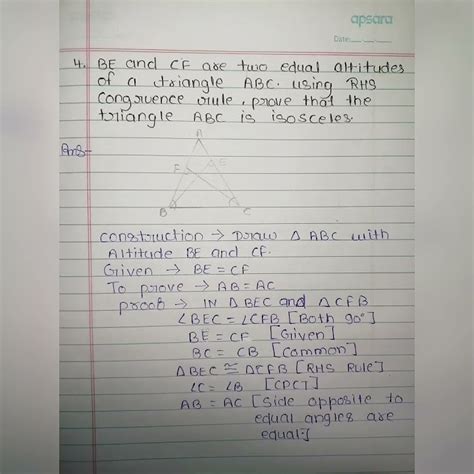 apsara
Date:
4. BE and CF are two equal altitudes
of a triangle ABC. using RHS
Congruence rule, prove that the
triangle ABC is isosceles.
Ans-
A
F E
B C
construction → Draw Δ ABC with
Altitude BE and CF.
Given → BE = CF
To prove → AB = AC
proof → IN Δ BEC and Δ CFB
∠BEC = ∠CFB [Both 90°]
BE = CF [Given]
BC = CB [Common]
ΔBEC ≅ ΔCFB [RHS Rule]
∠C = ∠B [CPCT]
AB = AC [Side opposite to
equal angles are
equal.]